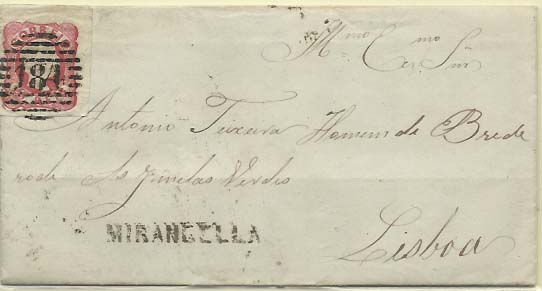 CORREIO
181
Illmo Exmo Snr
Antonio Teixeira Homem de Brede
rode As Janelas Verdes
MIRANDELLA
Lisboa